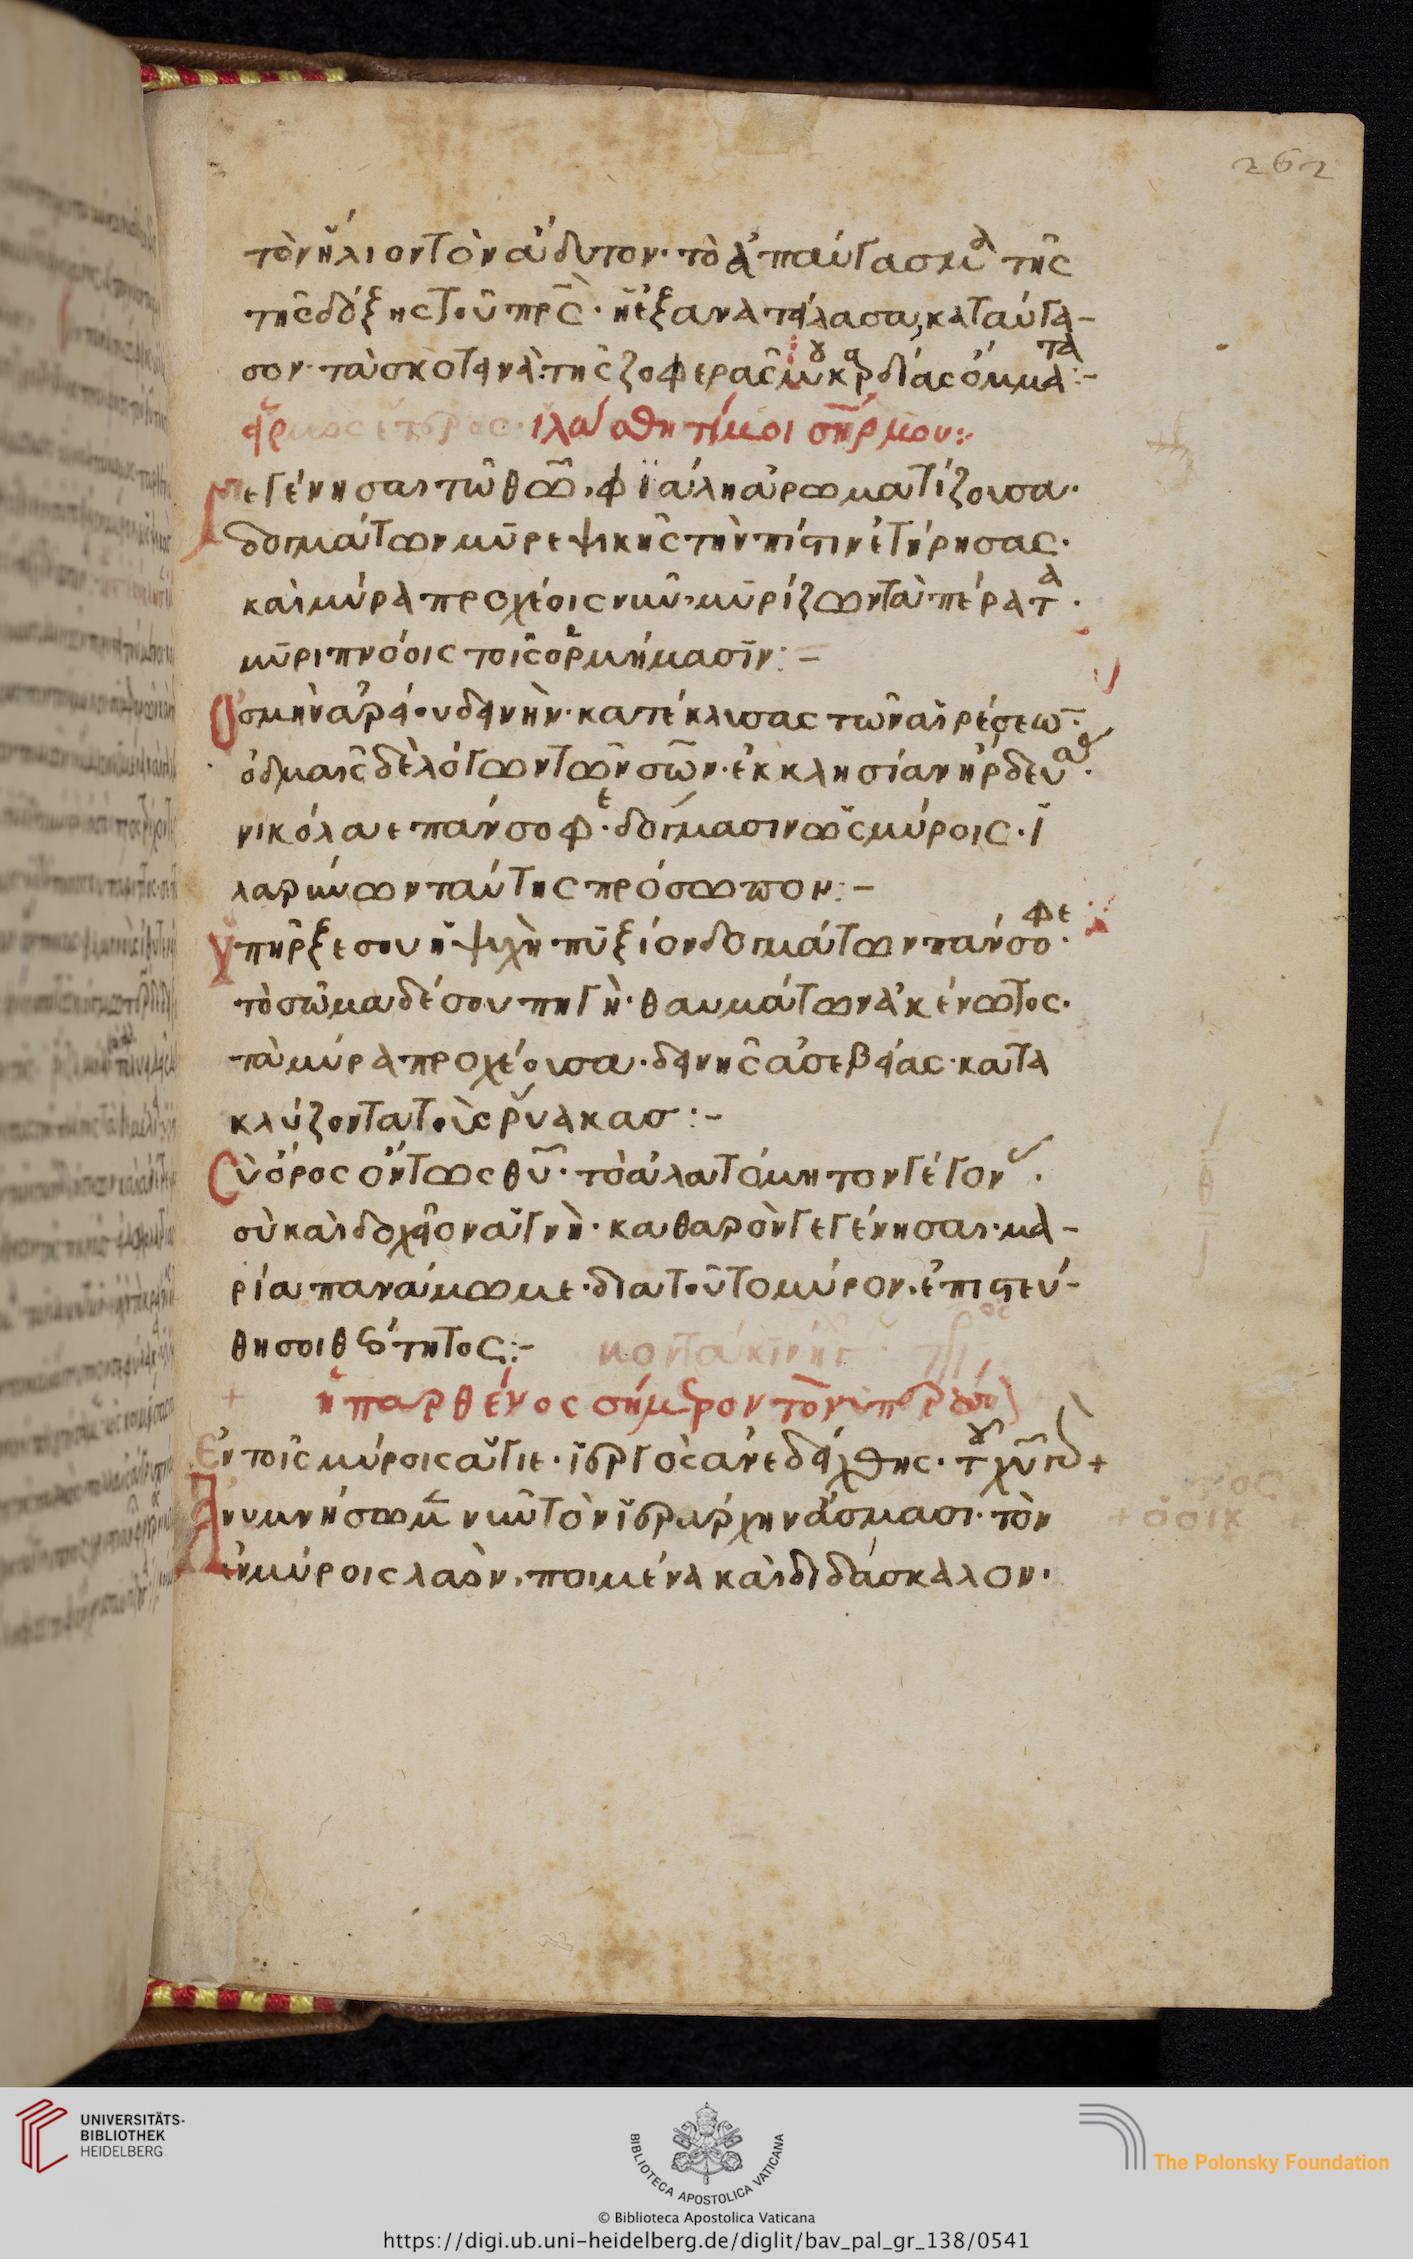 262
τὸν ἥλιον τὸν ἄδυτον· τὸ ἀπαύγασμα τῆς
τῆς δόξης τοῦ πρ̅ς· ἡ ἐξανατείλασα, καταύγα-
σον· τὰ σκοτεινὰ· τῆς ζοφερᾶς μου καρδίας ὄμματα:-
εἱρμος ἕτερος· ἱλάσθητί μοι σῆρ μου:
Γεγένησαι τῶ θῶ, φϊάλη ἀρωματίζουσα·
δογμάτων μυρεψικῆς τὴν πίστιν ἐτήρησας·
καὶ μύρα προχέοις νῦν, μυρίζων τὰ πέρατα·
μυριπνόοις τοῖς ὁρμήμασϊν:-
Ὀσμὴν ἀρείου δεινὴν· κατέκλυσας τῶν αἱρέσεω̅·
ὀδμαῖς δὲ λόγων τῶν σῶν· ἐκκλησίαν ἤρδευσας·
νικόλαε πάνσοφε· δόγμασιν ὡς μύροις· ἱ
λαρύνων ταύτης πρόσωπον:-
Ὑπῆρξε σου ἡ ψυχὴ· πυξίον δογμάτων πάνσοφε·
τὸ σῶμα δέ σου πηγὴ· θαυμάτων ἀκένωτος·
τὰ μύρα προχέουσα· δεινῆς ἀσεβείας· κατα
κλύζοντα τοὺς ῥύακασ:-
Σὺ ὄρος ὄντως θυ̅· τὸ ἀλατόμητον γέγονας·
σὺ καὶ δοχεῖον ἁγνὴ· καθαρὸν γεγένησαι· μα-
ρία παναίμωμε· διατοῦτο μύρον, ἐπιστεύ-
θη σοι θεότητος:- κοντάκιν ἦχ
+ ἡ παρθένος σήμερον τὸν ὑπερούσι
Ἐν τοῖς μύροις ἅγιε· ἱερουργὸς ἀνεδείχθης· τοῦ χυ̅ +
Ἀνυμνήσωμεν νῦν τὸν ἱεράρχην ἄσμασι· τὸν + ὁ οἶκ
ἐν μύροις λαὸν, ποιμένα καὶ διδάσκαλον·
UNIVERSITÄTS-
BIBLIOTHEK
HEIDELBERG
BIBLIOTECA APOSTOLICA VATICANA
The Polonsky Foundation
© Biblioteca Apostolica Vaticana
https://digi.ub.uni-heidelberg.de/diglit/bav_pal_gr_138/0541